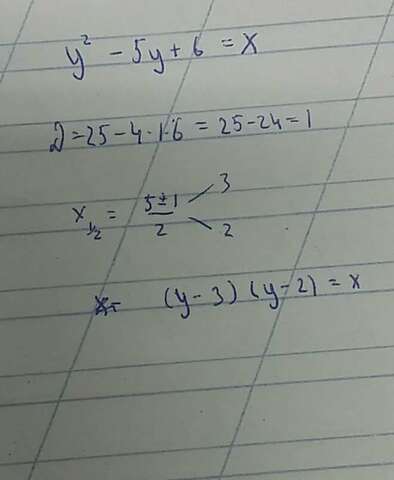 y² - 5y + 6 = x
D = 25 - 4 · 1 · 6 = 25 - 24 = 1
x½ = 5 ± 1 / 2 3 2
(y - 3) (y - 2) = x